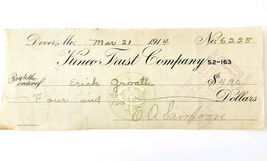 Dover, Me. Mar 21 1914 No. 6228
Kineo Trust Company 52-163
Pay to the order of Erick Groath $4
Four and 100 Dollars